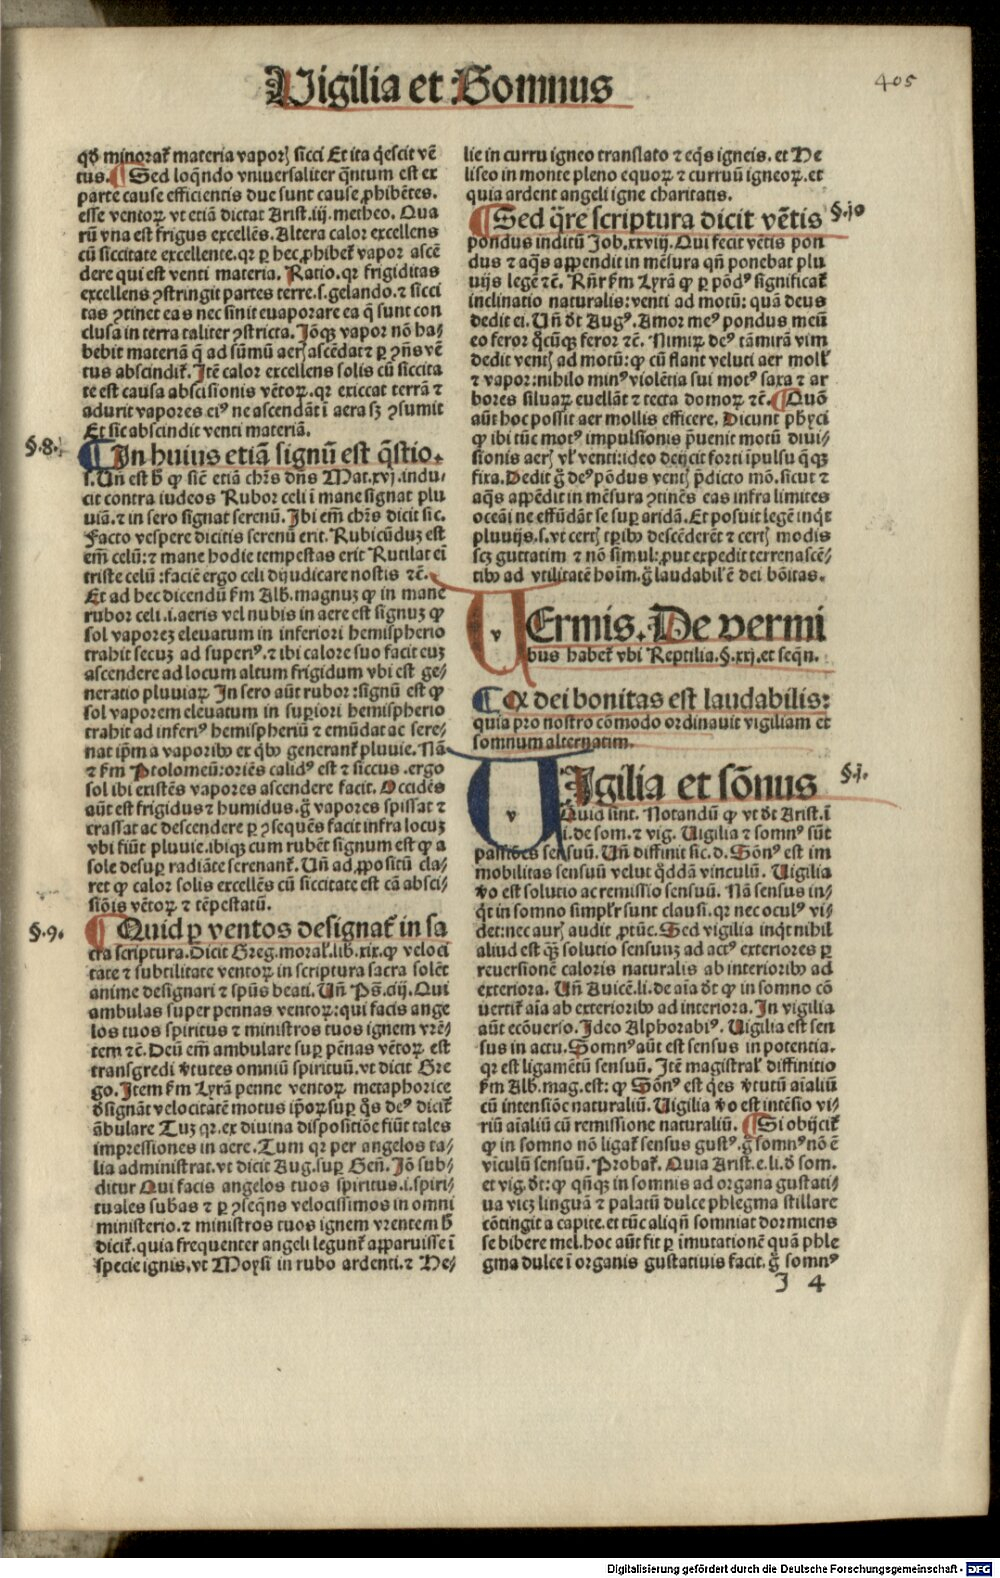 Vigilia et Somnus
405
qđ minorat᷑ materia vaporꝝ sicci Et ita q̇escit vē
tus. ¶ Sed loq̄ndo vniuersaliter q̄ntum est ex
parte cause efficientis due sunt cause ꝓhibētes.
esse ventoꝝ vt etiā dictat Arist.iij.metheo. Qua
rū vna est frigus excellēs. Altera calor excellens
cū siccitate excellente.qꝛ ꝑ hec ꝓhibet᷑ vapor ascē
dere qui est venti materia. Ratio.qꝛ frigiditas
excellens ꝯstringit partes terre.s.gelando.⁊ sicci
tas ꝯtinet eas nec sinit euaporare ea q̄ sunt con
clusa in terra taliter ꝯstricta. Jōqꝫ vapor nō ha/
bebit materiā q̄ ad sūmū aerꝭ ascēdat ⁊ ꝑ ꝯn̄s vē
tus abscindit᷑. Jtē calor excellens solis cū siccita
te est causa abscisionis vētoꝝ.qꝛ exiccat terrā ⁊
adurit vapores eiꝰ ne ascendāt ī aera sꝫ ꝯsumit
Et sic abscindit venti materiā.
§.8.
¶ Jn huius etiā signū est q̄stio.
s.Un̄ est ħ ꝙ sic̄ etiā chr̄s dn̄s Mat.xvj.indu/
cit contra iudeos Rubor celi ī mane signat plu
uiā.⁊ in sero signat serenū. Jbi em̄ chr̄s dicit sic.
Facto vespere dicitis serenū erit. Rubicūduꝫ est
em̄ celū:⁊ mane hodie tempestas erit Rutilat eī
triste celū:faciē ergo celi dijudicare nostis ⁊c̄.
Et ad hec dicendū ẜm Alb.magnuꝫ ꝙ in mane
rubor celi.i.aeris vel nubis in aere est signuꝫ ꝙ
sol vaporeꝫ eleuatum in inferiori hemispherio
trahit secuꝫ ad superiꝰ.⁊ ibi calore suo facit euꝫ
ascendere ad locum altum frigidum vbi est ge/
neratio pluuiaꝝ Jn sero aūt rubor:signū est ꝙ
sol vaporem eleuatum in suꝑiori hemispherio
trahit ad inferiꝰ hemispheriū ⁊ emūdat ac sere/
nat ip̄m a vaporibꝰ ex q̇bꝰ generant᷑ pluuie. Nā
⁊ ẜm Ptolomeū:oriēs calidꝰ est ⁊ siccus.ergo
sol ibi existēs vapores ascendere facit. Occidēs
aūt est frigidus ⁊ humidus.g̊ vapores spissat ⁊
crassat ac descendere ꝑ ꝯsequēs facit infra locuꝫ
vbi fiūt pluuie.ibiqꝫ cum rubēt signum est ꝙ a
sole desuꝑ radiāte screnant᷑. Un̄ ad ꝓpositū cla/
ret ꝙ calor solis excellēs cū siccitate est cā absci/
siōis vētoꝝ ⁊ tēpestatū.
§.9.
¶ Quid ꝑ ventos designat᷑ in sa
cra scriptura. Dicit Greg.moral.lib.xix.ꝙ veloci
tate ⁊ subtilitate ventoꝝ in scriptura sacra solēt
anime designari ⁊ spūs beati. Un̄ Ps̄.ciij. Qui
ambulas super pennas ventoꝝ:qui facis ange
los tuos spiritus ⁊ ministros tuos ignem vrē/
tem ⁊c̄. Deū em̄ ambulare suꝑ pēnas vētoꝝ est
transgredi v̓tutes omniū spirituū.vt dicit Gre
go. Jtem ẜm Lyrā penne ventoꝝ metaphorice
ꝺsignāt velocitatē motus ip̄oꝝ suꝑ q̊s deꝰ dicit᷑
ābulare Tuꝫ qꝛ.ex diuina dispositiōe fiūt tales
impressiones in aere. Tum qꝛ per angelos ta/
lia administrat.vt dicit Aug.suꝑ Gen̄. Jō sub/
ditur Qui facis angelos tuos spiritus.i.spiri/
tuales subas ⁊ ꝑ ꝯseqn̄s velocissimos in omni
ministerio.⁊ ministros tuos ignem vrentem ħ
dicit᷑.quia frequenter angeli legunt᷑ aꝑparuisse ī
specie ignis.vt Moysi in rubo ardenti.⁊ He/
lie in curru igneo translato ⁊ eq̇s igneis.et He
liseo in monte pleno equoꝝ ⁊ curruū igneoꝝ.et
quia ardent angeli igne charitatis.
§.10
¶ Sed q̄re scriptura dicit vētis
pondus inditū Job.xxviij. Qui fecit vētis pon
dus ⁊ aq̄s aꝑpendit in mēsura qn̄ ponebat plu
uijs legē ⁊c̄. Rn̄r ẜm Lyrā ꝙ ꝑ pōdꝰ significat᷑
inclinatio naturalis:venti ad motū:quā deus
dedit ei. Un̄ dt̄ Augꝰ. Amor meꝰ pondus meū
eo feror q̊cūqꝫ feror ⁊c̄. Nimiꝝ deꝰ tā mirā vim
dedit ventꝭ ad motū:ꝙ cū flant veluti aer mollꝭ
⁊ vapor:nihilo minꝰ violētia sui motꝰ saxa ⁊ ar
bores siluaꝝ euellāt ⁊ tecta domoꝝ ⁊c̄. ¶ Quō
aūt hoc possit aer mollis efficere. Dicunt phyci
ꝙ ibi tūc motꝰ impulsionis ꝑuenit motū diui/
sionis aerꝭ vl̓ venti:ideo deijcit forti īpulsu q̄qꝫ
fixa. Dedit g̊ deꝰ pōdus ventꝭ p̄dicto mō.sicut ⁊
aq̄s aꝑpēdit in mēsura ꝯtinēs eas infra limites
oceāi ne effūdāt se suꝑ aridā. Et posuit legē inq̇t
pluuijs.s.vt certꝭ tꝑibꝰ descēderēt ⁊ certꝭ modis
scꝫ guttatim ⁊ nō simul:ꝓut expedit terrenascē/
tibꝰ ad vtilitatē hoīm.g̊ laudabil̓ ē dei bōitas.
v
UErmis. De vermi
bus habet᷑ vbi Reptilia.§.xxj.et seqn̄.
¶ Ex dei bonitas est laudabilis:
quia pro nostro cōmodo ordinauit vigiliam et
somnum alternatim.
§.j.
v
UJgilia et sōnus
Quid sint. Notandū ꝙ vt dt̄ Arist.ī
i.de som.⁊ vig. Uigilia ⁊ somnꝰ sūt
passiōes sensuū. Un̄ diffinit sic.d. Sōnꝰ est im
mobilitas sensuū velut q̊ddā vinculū. Uigilia
v̓o est solutio ac remissio sensuū. Nā sensus in/
q̇t in somno simplr̄ sunt clausi.qꝛ nec oculꝰ vi/
det:nec aurꝭ audit ꝓtūc. Sed vigilia inq̇t nihil
aliud est q̄ꝫ solutio sensuuꝫ ad actꝰ exteriores ꝑ
reuersionē caloris naturalis ab interioribꝰ ad
exteriora. Un̄ Auicē.li.de aīa dt̄ ꝙ in somno cō
uertit᷑ aīa ab exterioribꝰ ad interiora. Jn vigilia
aūt ecōuerso. Jdeo Alphorabiꝰ. Uigilia est sen
sus in actu. Somnꝰ aūt est sensus in potentia.
qꝛ est ligamētū sensuū. Jtē magistral̓ diffinitio
ẜm Alb.mag.est:ꝙ Sōnꝰ est q̇es v̓tutū aīaliū
cū intensiōe naturaliū. Uigilia v̓o est intēsio vi/
riū aīaliū cū remissione naturaliū. ¶ Si obijcit᷑
ꝙ in somno nō ligat᷑ sensus gustꝰ.g̊ somnꝰ nō ē
vīculū sensuū. Probat᷑. Quia Arist.e.li.ꝺ som.
et vig.dt̄:ꝙ qn̄qꝫ in somnis ad organa gustati/
ua vicꝫ linguā ⁊ palatū dulce phlegma stillare
cōtingit a capite.et tūc aliqn̄ somniat dormiens
se bibere mel.hoc aūt fit ꝑ imutationē quā phle
gma dulce ī organis gustatiuis facit.g̊ somnꝰ
J 4
Digitalisierung gefördert durch die Deutsche Forschungsgemeinschaft - DFG